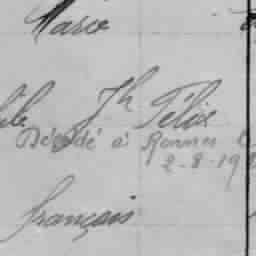 Marie
Jh Félix
Décédé à Rennes
2-8-19
français